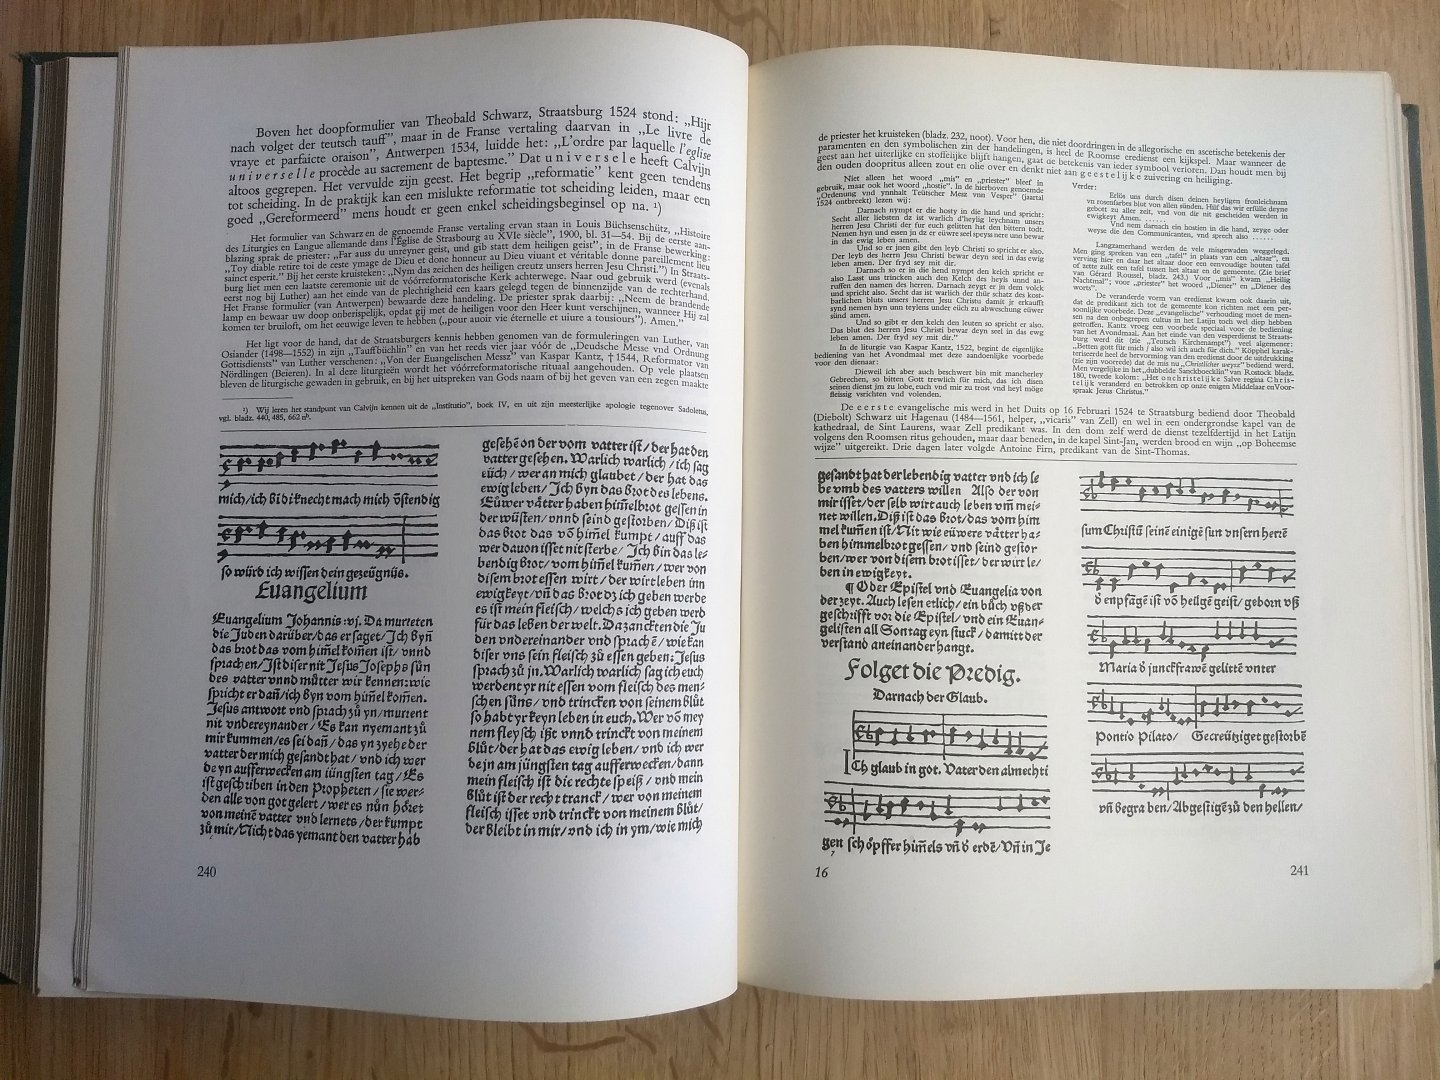 Boven het doopformulier van Theobald Schwarz, Straatsburg 1524 stond: „Hijr
nach volget der teutsch tauff”, maar in de Franse vertaling daarvan in „Le livre de
vraye et parfaicte oraison”, Antwerpen 1534, luidde het: „L'ordre par laquelle l'eglise
universelle procède au sacrement de baptesme.” Dat universele heeft Calvijn
altoos gegrepen. Het vervulde zijn geest. Het begrip „reformatie” kent geen tendens
tot scheiding. In de praktijk kan een mislukte reformatie tot scheiding leiden, maar een
goed „Gereformeerd” mens houdt er geen enkel scheidingsbeginsel op na. ¹)
Het formulier van Schwarz en de genoemde Franse vertaling ervan staan in Louis Büchsenschütz, „Histoire
des Liturgies en Langue allemande dans l'Église de Strasbourg au XVIe siècle”, 1900, bl. 31—54. Bij de eerste aan-
blazing sprak de priester: „Far auss du unreyner geist, und gib statt dem heiligen geist”; in de Franse bewerking:
„Toy diable retire toi de ceste ymage de Dieu et done honneur au Dieu viuant et véritable donne pareillement lieu
sainct esperit.” Bij het eerste kruisteken: „Nym das zeichen des heiligen creutz unsers herren Jesu Christi.”) In Straats-
burg liet men een laatste ceremonie uit de vóórreformatorische Kerk achterwege. Naar oud gebruik werd (evenals
eerst nog bij Luther) aan het einde van de plechtigheid een kaars gelegd tegen de binnenzijde van de rechterhand.
Het Franse formulier (van Antwerpen) bewaarde deze handeling. De priester sprak daarbij: „Neem de brandende
lamp en bewaar uw doop onberispelijk, opdat gij met de heiligen voor den Heer kunt verschijnen, wanneer Hij zal
komen ter bruiloft, om het eeuwige leven te hebben („pour auoir vie éternelle et uiure a tousiours”). Amen.”
Het ligt voor de hand, dat de Straatsburgers kennis hebben genomen van de formuleringen van Luther, van
Osiander (1498—1552) in zijn „Tauffbüchlin” en van het reeds vier jaar vóór de „Deudsche Messe vnd Ordnung
Gottisdiensts” van Luther verschenen: „Von der Euangelischen Messz” van Kaspar Kantz, † 1544, Reformator van
Nördlingen (Beieren). In al deze liturgieën wordt het vóórreformatorische rituaal aangehouden. Op vele plaatsen
bleven de liturgische gewaden in gebruik, en bij het uitspreken van Gods naam of bij het geven van een zegen maakte
¹) Wij leren het standpunt van Calvijn kennen uit de „Institutio”, boek IV, en uit zijn meesterlijke apologie tegenover Sadoletus,
vgl. bladz. 440, 485, 662 nᵇ.
mich/ich bi di knecht mach mich v̄stendig
so würd ich wissen dein gezeügnüs.
Euangelium
Euangelium Johannis :vj. Da murreten
die Juden darüber/das er saget/Ich byn
das brot das vom him̄el kom̄en ist/vnnd
sprachen/Ist diser nit Jesus Josephs sün
des vatter vnnd mütter wir kennen:wie
spricht er dañ/ich byn vom him̄el kom̄en.
Jesus antwort vnd sprach zů yn/murrent
nit vndereynander/Es kan nyemant zů
mir kummen/es sei dañ/das yn zyehe der
vatter der mich gesandt hat/vnd ich wer
de yn aufferwecken am jüngsten tag/Es
ist geschriben in den Propheten/sie wer-
den alle von got gelert/wer es nůn höret
von meinē vatter vnd lernets/der kumpt
zů mir/Nicht das yemant den vatter hab
gesehē on der vom vatter ist/der hat den
vatter gesehen. Warlich warlich/ich sag
eüch/wer an mich glaubet/der hat das
ewig leben/Ich byn das brot des lebens.
Eüwer vätter haben him̄elbrot gessen in
der wüsten/vnnd seind gestorben/Diß ist
das brot das vō him̄el kumpt/auff das
wer dauon isset nit sterbe/Ich bin das le-
bendig brot/vom him̄el kum̄en/wer von
disem brot essen wirt/der wirt leben inn
ewigkeyt/vn̄ das brot dz ich geben werde
es ist mein fleisch/welchs ich geben werd
für das leben der welt. Da zanckten die Ju
den vndereinander vnd sprachē/wie kan
diser vns sein fleisch zů essen geben:Jesus
sprach zů jn. Warlich warlich sag ich euch
werdent yr nit essen vom fleisch des men-
schen süns/vnd trincken von seinem blůt
so habt yr keyn leben in euch. Wer vō mey
nem fleysch ißt vnnd trinckt von meinem
blůt/der hat das ewig leben/vnd ich wer
de jn am jüngsten tag aufferwecken/dann
mein fleisch ist die rechte speiß/vnd mein
blůt ist der recht tranck/wer von meinem
fleisch isset vnd trinckt von meinem blůt/
der bleibt in mir/vnd ich in ym/wie mich
240
de priester het kruisteken (bladz. 232, noot). Voor hen, die niet doordringen in de allegorische en ascetische betekenis der
paramenten en den symbolischen zin der handelingen, is heel de Roomse eredienst een kijkspel. Maar wanneer de
geest aan het uiterlijke en stoffelijke blijft hangen, gaat de betekenis van ieder symbool verloren. Dan houdt men bij
den ouden doopritus alleen zout en olie over en denkt niet aan geestelijke zuivering en heiliging.
Niet alleen het woord „mis” en „priester” bleef in
gebruik, maar ook het woord „hostie”. In de hierboven genoemde
„Ordenung vnd ynnhalt Teütscher Mesz vnn Vesper” (jaartal
1524 ontbreekt) lezen wij:
Darnach nympt er die hosty in die hand und spricht:
Secht aller liebsten dz ist warlich d'heylig leychnam unsers
herren Jesu Christi der fur euch gelitten hat den bittern todt.
Nemen hyn und essen jn dz er eüwre seel speyss nere unn bewar
in das ewig leben amen.
Und so er jnen gibt den leyb Christi so spricht er also.
Der leyb des herren Jesu Christi bewar deyn seel in das ewig
leben amen. Der fryd sey mit dir.
Darnach so er in die hend nympt den kelch spricht er
also Lasst uns trincken auch den Kelch des heyls unnd an-
ruffen den namen des herren. Darnach zeygt er jn dem volck
und spricht also. Secht das ist warlich der thür schatz des kost-
barlichen bluts unsers herren Jesu Christu damit jr erkaufft
synd nement hyn unn teylens under eüch zu abweschung eüwer
sünd amen.
Und so er gibt den kelch den leuten so spricht er also.
Das blut des herren Jesu Christ bewar deyn seel in das ewig
leben amen. Der fryd sey mit dir.”
In de liturgie van Kaspar Kantz, 1522, begint de eigenlijke
bediening van het Avondmaal met deze aandoenlijke voorbede
voor den dienaar:
Dieweil ich aber auch beschwert bin mit mancherley
Gebrechen, so bitten Gott trewlich für mich, das ich disen
seinen dienst jm zu lobe, euch vnd mir zu trost vnd heyl möge
fleissig varichten vnd volenden.
Verder:
Erlös uns durch disen deinen heyligen fronleichnam
vn rosenfarbes blut von allen sünden. Hilf das wir erfülle deyne
gebott zu aller zeit, vnd von dir nit gescheiden werden in
ewigkeyt Amen. ......
Vnd nem darnach ein hostien in die hand, zeyge oder
weyse die den Communicanten, vnd sprech also ......
Langzamerhand werden de vele misgewaden weggelegd.
Men ging spreken van een „tafel” in plaats van een „altaar”, en
verving hier en daar het altaar door een eenvoudige houten tafel
of zette zulk een tafel tussen het altaar en de gemeente. (Zie brief
van Gérard Roussel, bladz. 243.) Voor „mis” kwam „Heilig
Nachtmal”; voor „priester” het woord „Diener” en „Diener des
worts”
De veranderde vorm van eredienst kwam ook daarin uit,
dat de predikant zich tot de gemeente kon richten met een per-
soonlijke voorbede. Deze „evangelische” verhouding moet de men-
sen na den onbegrepen cultus in het Latijn toch wel diep hebben
getroffen. Kantz vroeg een voorbede speciaal voor de bediening
van het Avondmaal. Aan het einde van den vesperdienst te Straats-
burg werd dit (zie „Teutsch Kirchenampt”) veel algemener:
„Betten gott für mich / also wil ich auch für dich.” Köpphel karak-
teriseerde heel de hervorming van den eredienst door de uitdrukking
(zie zijn voorrede) dat de mis nu „Christlicher weysz” bediend werd.
Men vergelijke in het „dubbelde Sanckboecklin” van Rostock bladz.
180, tweede kolom: „Het onchristelike Salve regina Chris-
telik veranderd en betrokken op onze enigen Middelaar en Voor-
spraak Jezus Christus.”
De eerste evangelische mis werd in het Duits op 16 Februari 1524 te Straatsburg bediend door Theobald
(Diebolt) Schwarz uit Hagenau (1484—1561, helper, „vicaris” van Zell) en wel in een ondergrondse kapel van de
kathedraal, de Sint Laurens, waar Zell predikant was. In den dom zelf werd de dienst tezelfdertijd in het Latijn
volgens den Roomsen ritus gehouden, maar daar beneden, in de kapel Sint-Jan, werden brood en wijn „op Boheemse
wijze” uitgereikt. Drie dagen later volgde Antoine Firn, predikant van de Sint-Thomas.
gesandt hat der lebendig vatter vnd ich le
be vmb des vatters willen Also der von
mir isset/der selb wirt auch leben vm̄ mei-
net willen. Diß ist das brot/das vom him
mel kum̄en ist/Nit wie eüwere vätter ha-
ben himmelbrot gessen/vnd seind gestor
ben/wer von disem brot isset/der wirt le/
ben in ewigkeyt.
¶ Oder Epistel vnd Euangelia von
der zeyt. Auch lesen etlich/ein bůch vß der
geschrifft vor die Epistel/vnd ein Euan-
gelisten all Sontag eyn stuck/damitt der
verstand aneinander hangt.
Folget die Predig.
Darnach der Glaub.
ICh glaub in got. Vater den almechti
gen schöpffer him̄els vn̄ d' erdē/Vn̄ in Je
sum Christū seinē einigē sun vnsern herē
d' enpfāgē ist vō heilgē geist/geborn vß
Maria d' junckfrawē gelittē vnter
Pontio Pilato/ Gecreütziget gestorbē
vn̄ begra ben/Abgestigē zů den hellen/
16
241